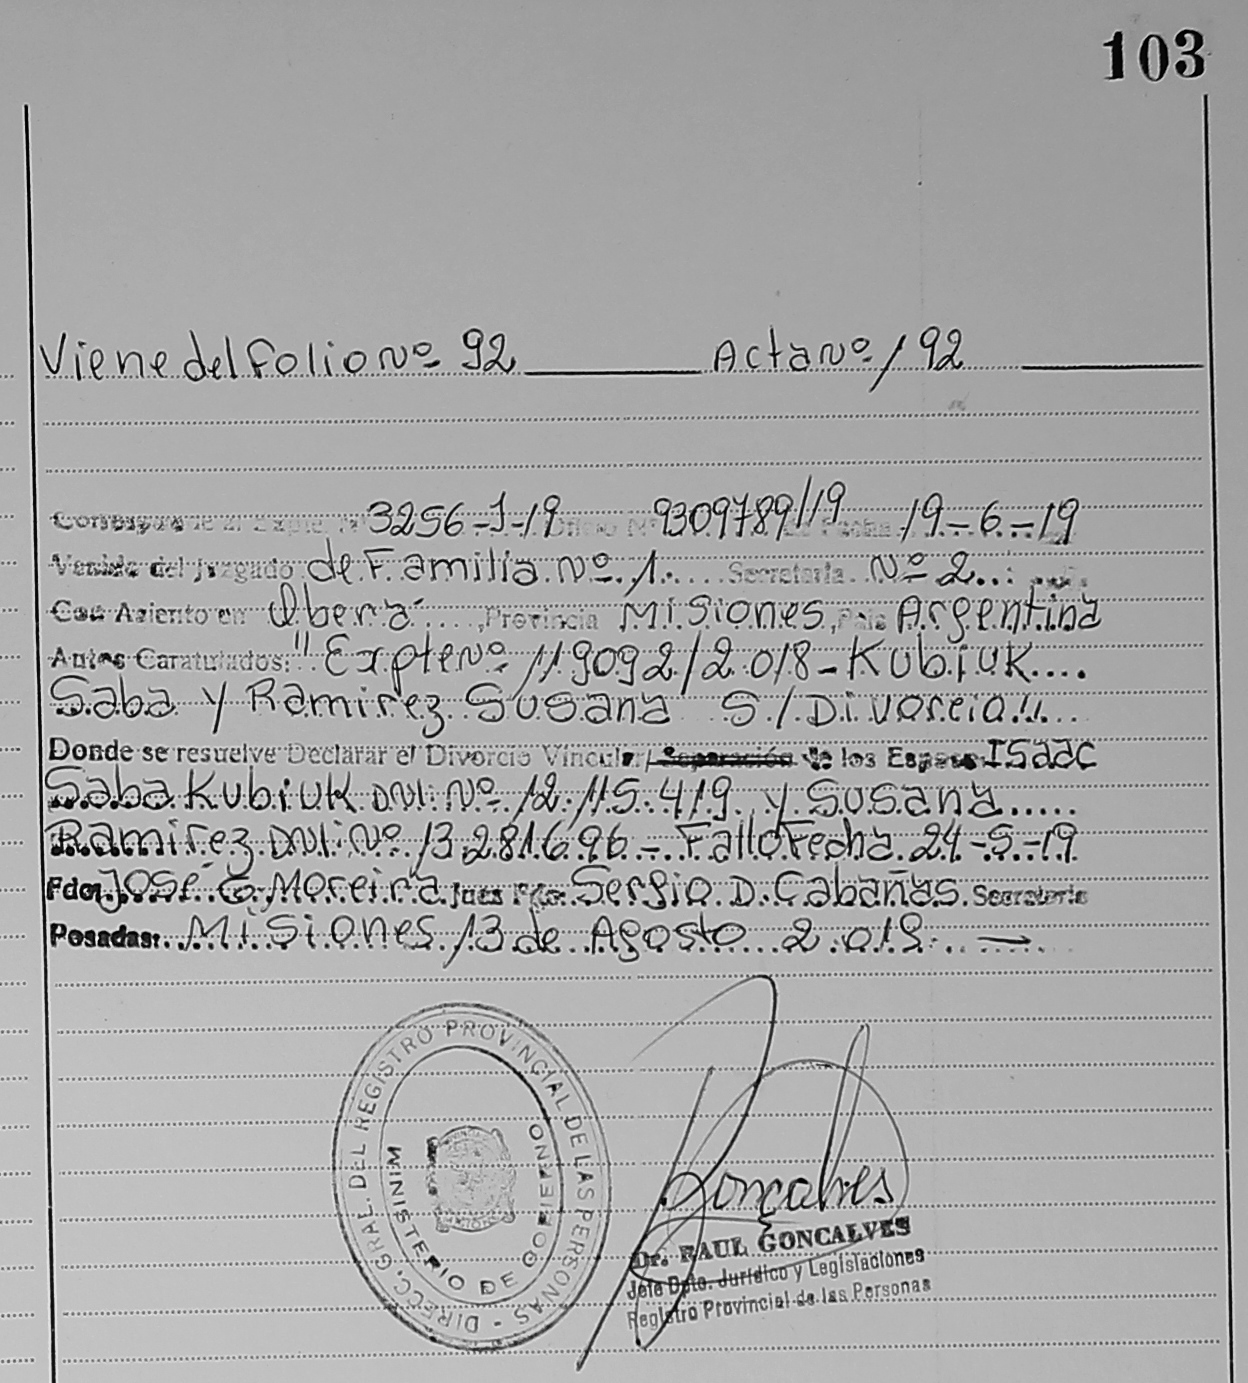 103
Viene del folio Nº 92 Acta Nº 192
Corresponde al Expte. Nº 3256-J-19 Oficio Nº 9309789/19 de Fecha 19-6-19
Venido del Juzgado de Familia Nº 1. Secretaria Nº 2
Con Asiento en Oberá, Provincia Misiones, País Argentina
Autos Caratulados: "Expte Nº 119092/2018-Kubiuk
Saba y Ramirez Susana S/Divorcio"
Donde se resuelve Declarar el Divorcio Vincular/Separación de los Esposos Isaac
Saba Kubiuk DNI. Nº 12.115.419 y Susana
Ramirez DNI Nº 13.281.696 - Fallo Fecha 24-5-19
Fdo. José G. Moreira Juez Fdo. Sergio D. Cabañas Secretario
Posadas: Misiones 13 de Agosto 2.019
DIRECC. GRAL. DEL REGISTRO PROVINCIAL DE LAS PERSONAS -
MINISTERIO DE GOBIERNO
Goncalves
Dr. RAUL GONCALVES
Jefe Dpto. Jurídico y Legislaciones
Registro Provincial de las Personas